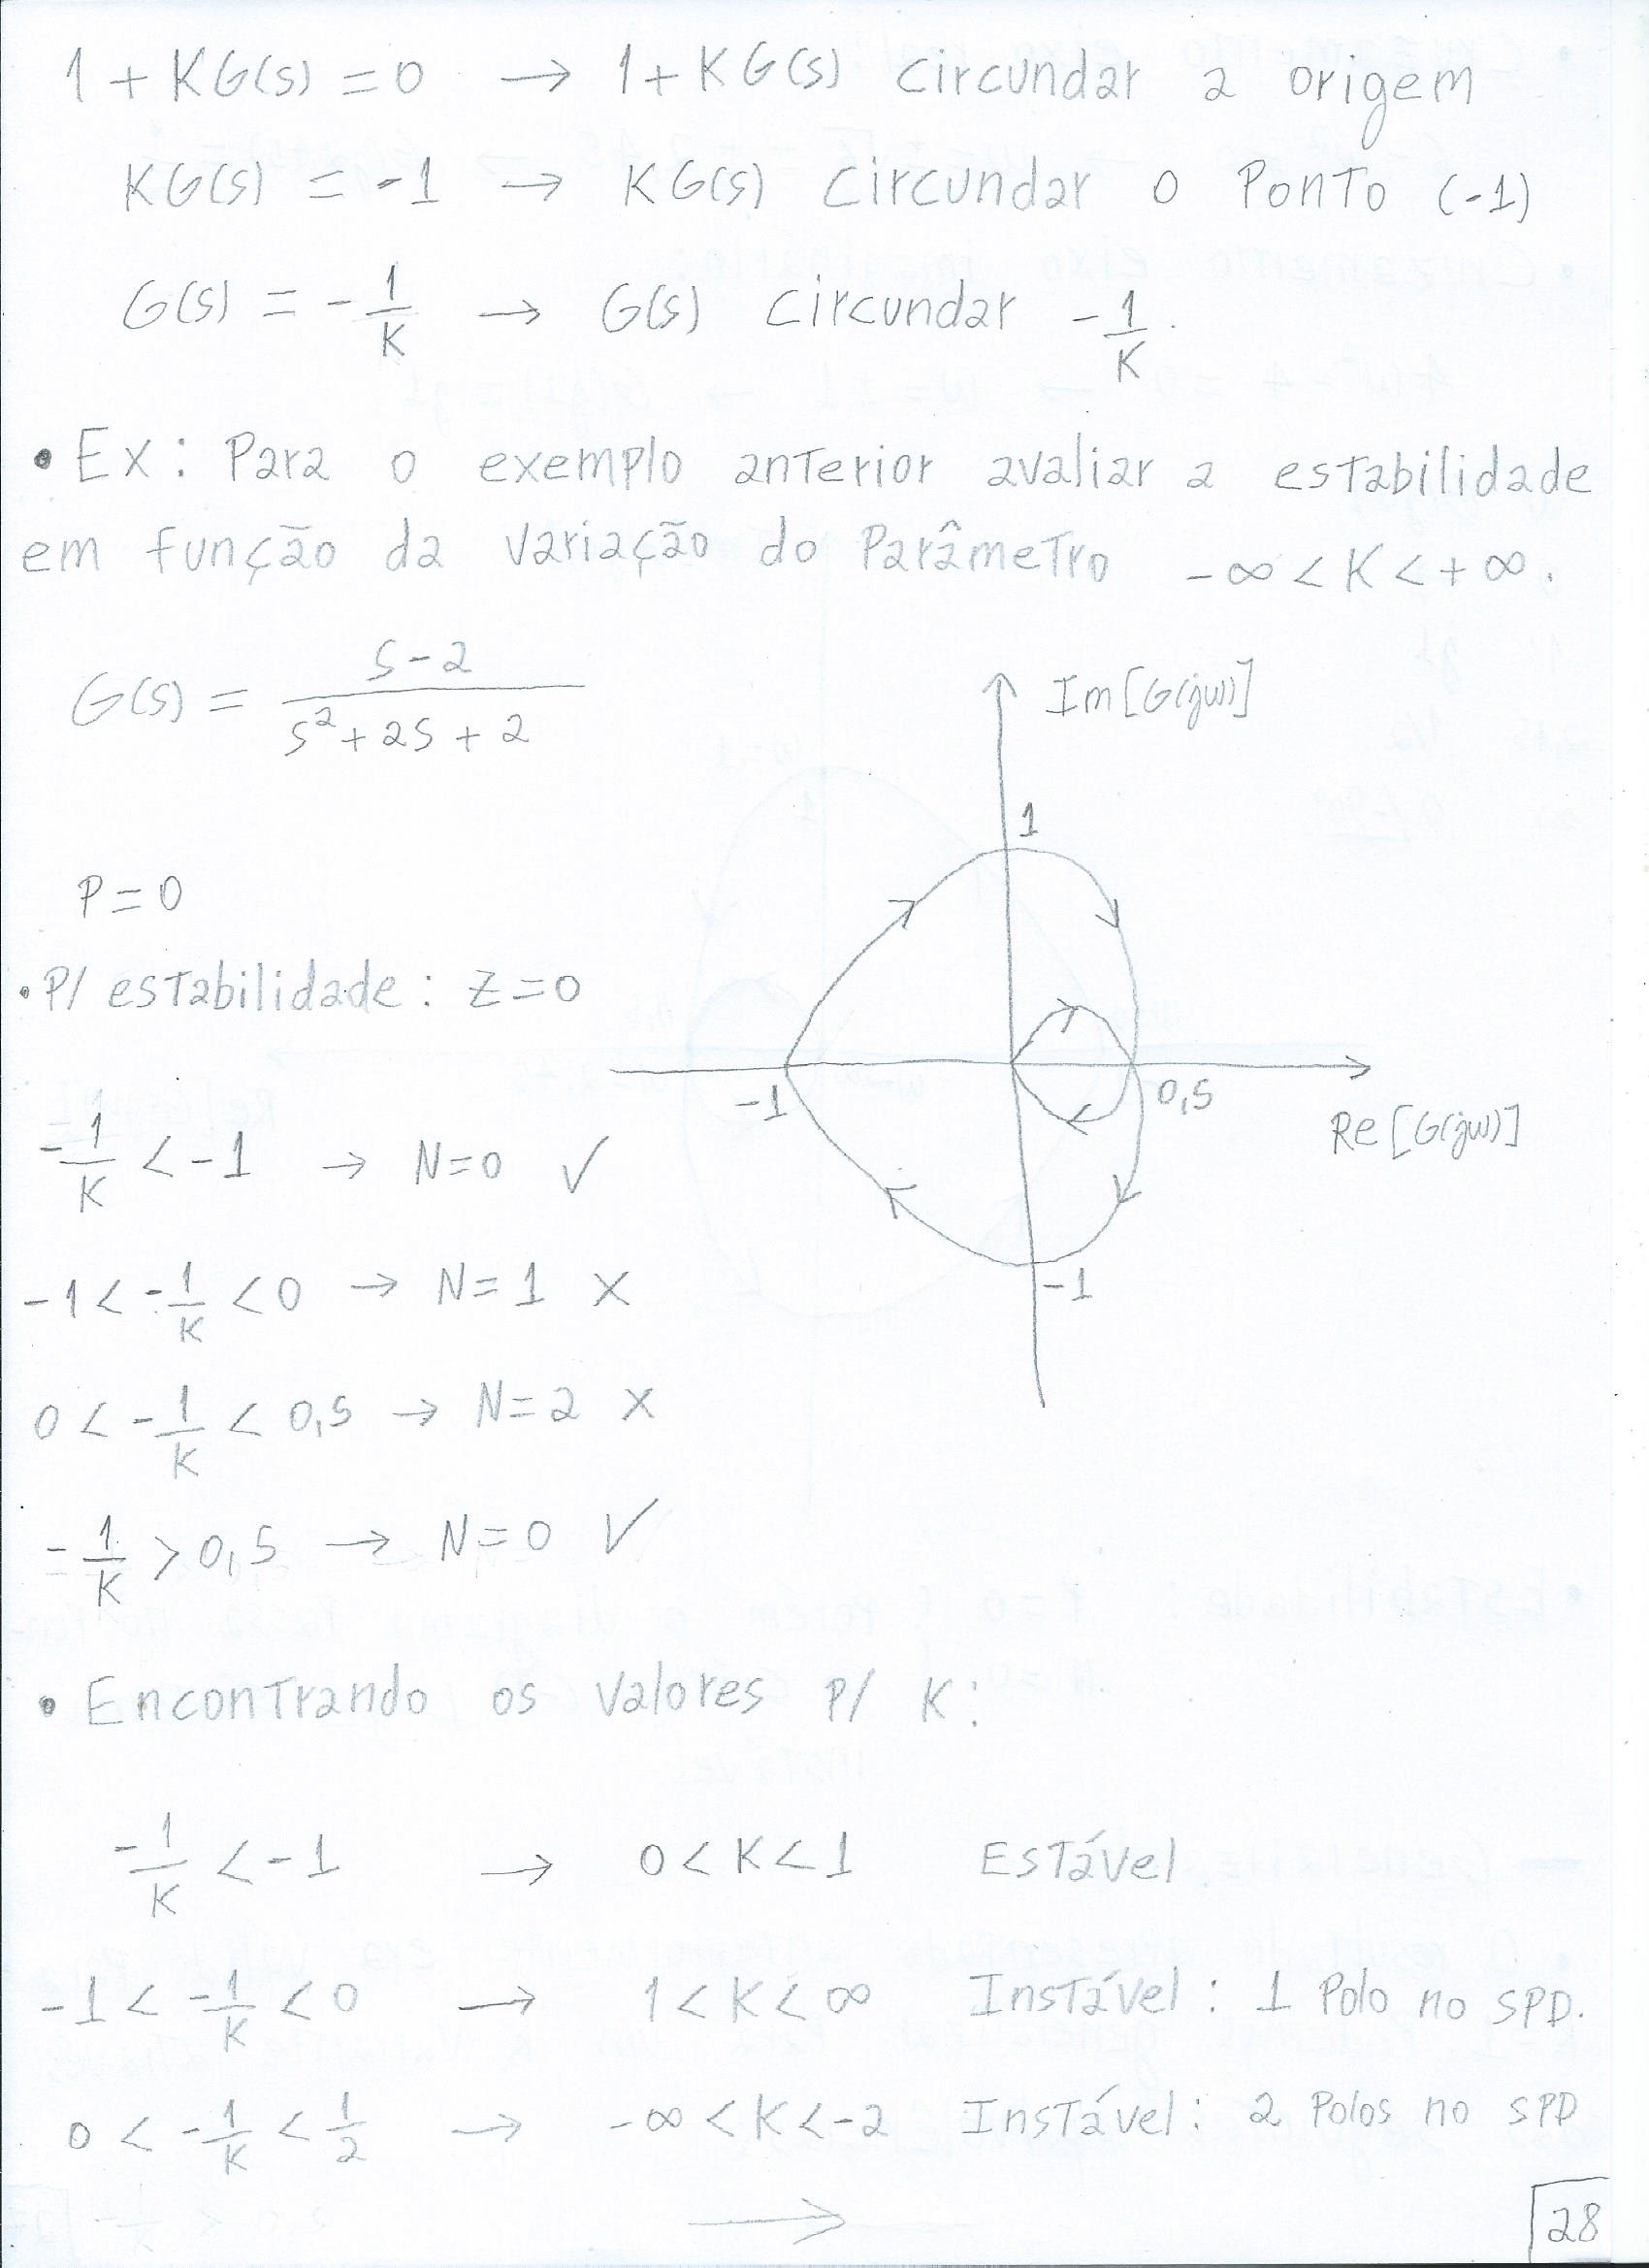 1 + KG(s) = 0 → 1 + KG(s) circundar a origem
KG(s) = -1 → KG(s) circundar o ponto (-1)
G(s) = -1/K → G(s) circundar -1/K.
• Ex: Para o exemplo anterior avaliar a estabilidade
em função da variação do parâmetro -∞ < K < +∞.
G(s) = (s-2)/(s²+2s+2)
Im[G(jw)]
1
P=0
• P/ estabilidade: Z=0
-1
0,5
Re[G(jw)]
-1
-1/K < -1 → N=0 ✓
-1 < -1/K < 0 → N=1 X
0 < -1/K < 0,5 → N=2 X
-1/K > 0,5 → N=0 ✓
• Encontrando os valores p/ K:
-1/K < -1 → 0 < K < 1 Estável
-1 < -1/K < 0 → 1 < K < ∞ Instável: 1 polo no SPD.
0 < -1/K < 1/2 → -∞ < K < -2 Instável: 2 polos no SPD
→
28